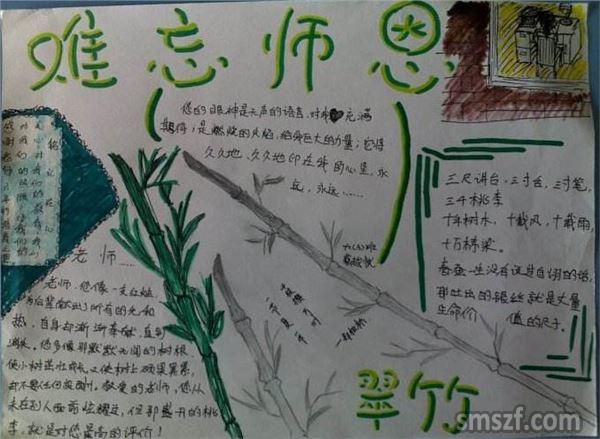 难忘师恩
您的眼神是无声的语言，对我充满
期待；是燃烧的火焰，给我巨大的力量；它将
久久地、久久地印在我的心里，永
远，永远……
三尺讲台，三寸舌，三寸笔，
三千桃李
十年树木，十载风，十载雨，
十万栋梁。
春蚕一生没有说过自诩的话，
那吐出的银丝就是丈量
生命价值的尺子。
老师……
老师，您像一支红烛，
为后辈献出了所有的光和
热，自身却渐渐奉献，直到
消失。您多像那默默无闻的树根，
使小树茁壮成长，又使树上硕果累累，
却不要任何报酬。敬爱的老师，您从
未在别人面前炫耀过，但那盛开的桃
李，就是对您最高的评价！
翠竹
smszf.com